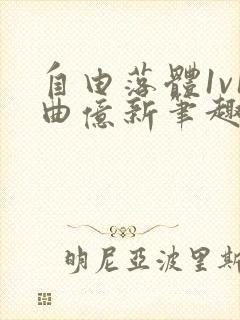 自由落體1v1
曲億新筆趣
明尼亞波里斯